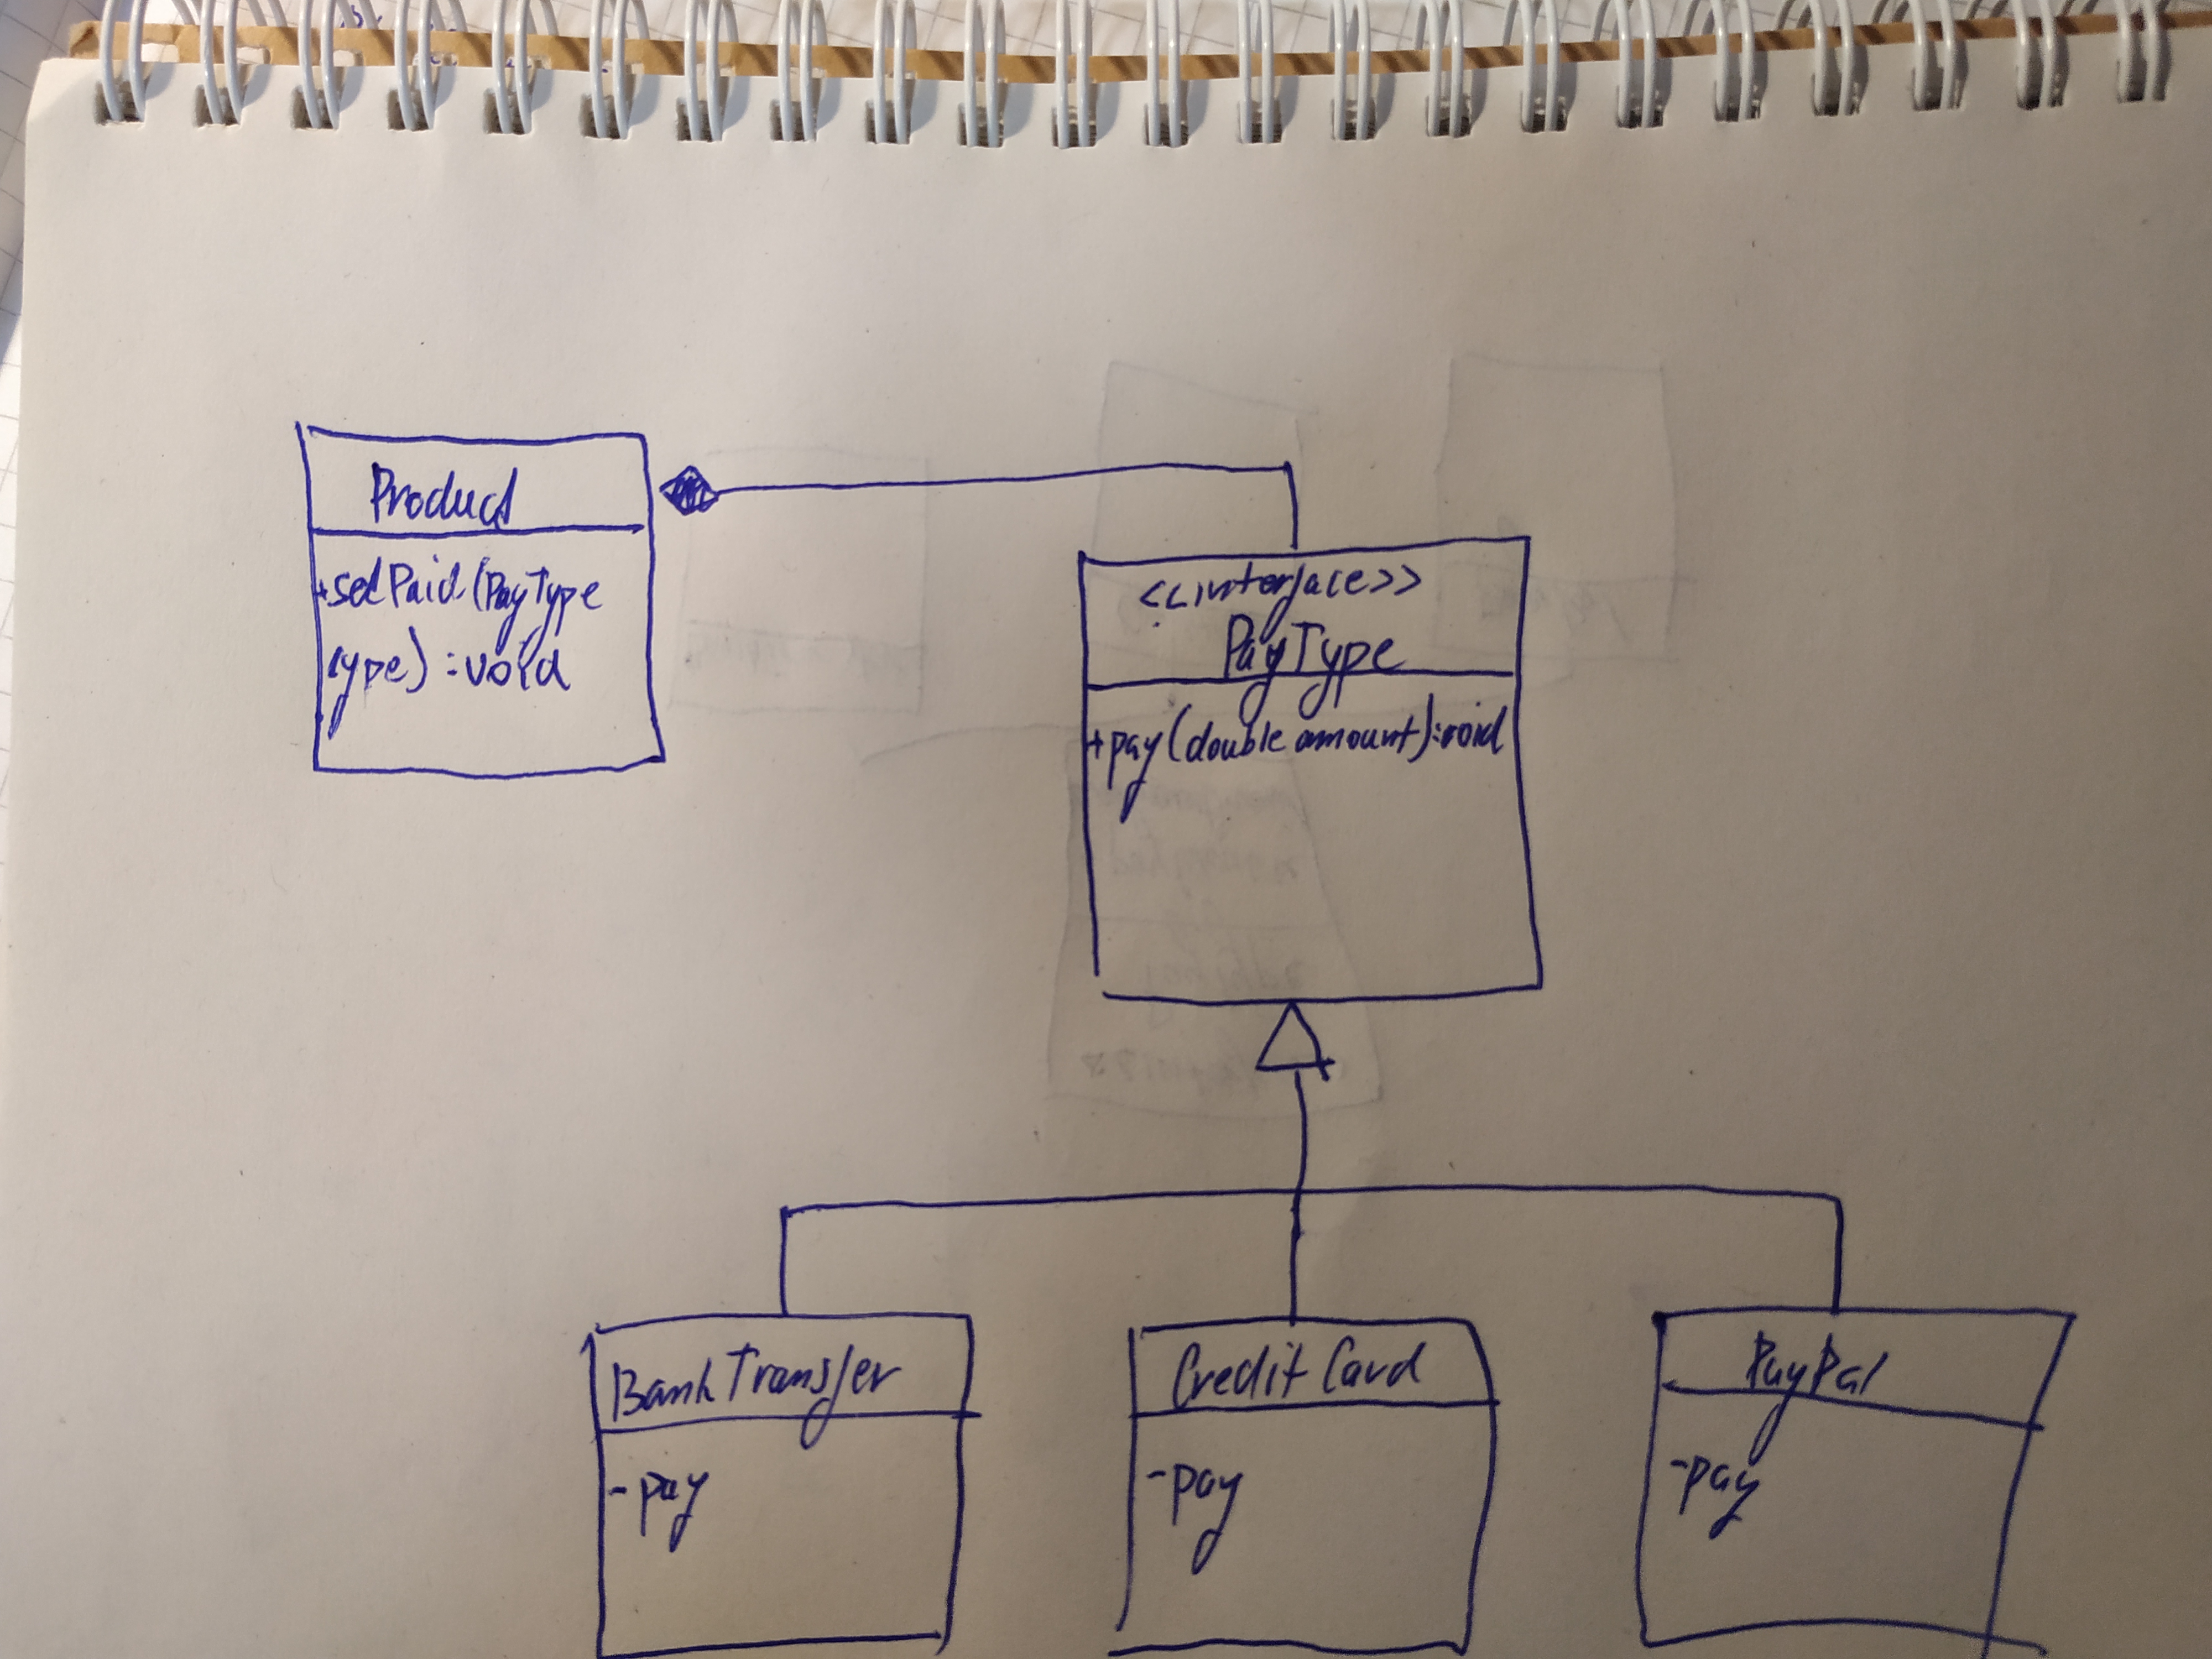 Product
+setPaid(PayType
type):void
<<interface>>
PayType
+pay(double amount):void
BankTransfer
-pay
CreditCard
-pay
PayPal
-pay